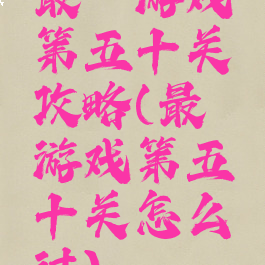 最 游戏
第五十关
攻略(最
游戏第五
十关怎么
过)